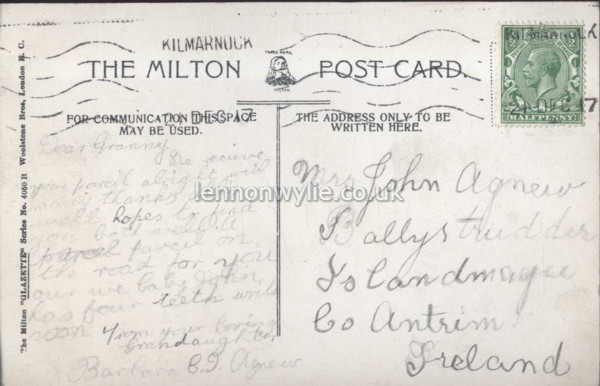 KILMARNOCK
KILMARNOCK
THE MILTON POST CARD.
TRADE MARK
21 DEC 17
21 DEC 17
HALFPENNY
FOR COMMUNICATION THIS SPACE
MAY BE USED.
THE ADDRESS ONLY TO BE
WRITTEN HERE.
Dear Granny
We recieve
your parcel alright with
many thanks
well hopes to find
you both well A
parcel parcel on
the road for you
our wee baby John
has four teeth write
soon from your loving
Grandaughter
Barbara C. J. Agnew
Mrs John Agnew
Ballystrudder
Islandmagee
Co Antrim
Ireland
lennonwylie.co.uk
The Milton "GLAZETTE" Series No. Woolstone Bros., London E. C.